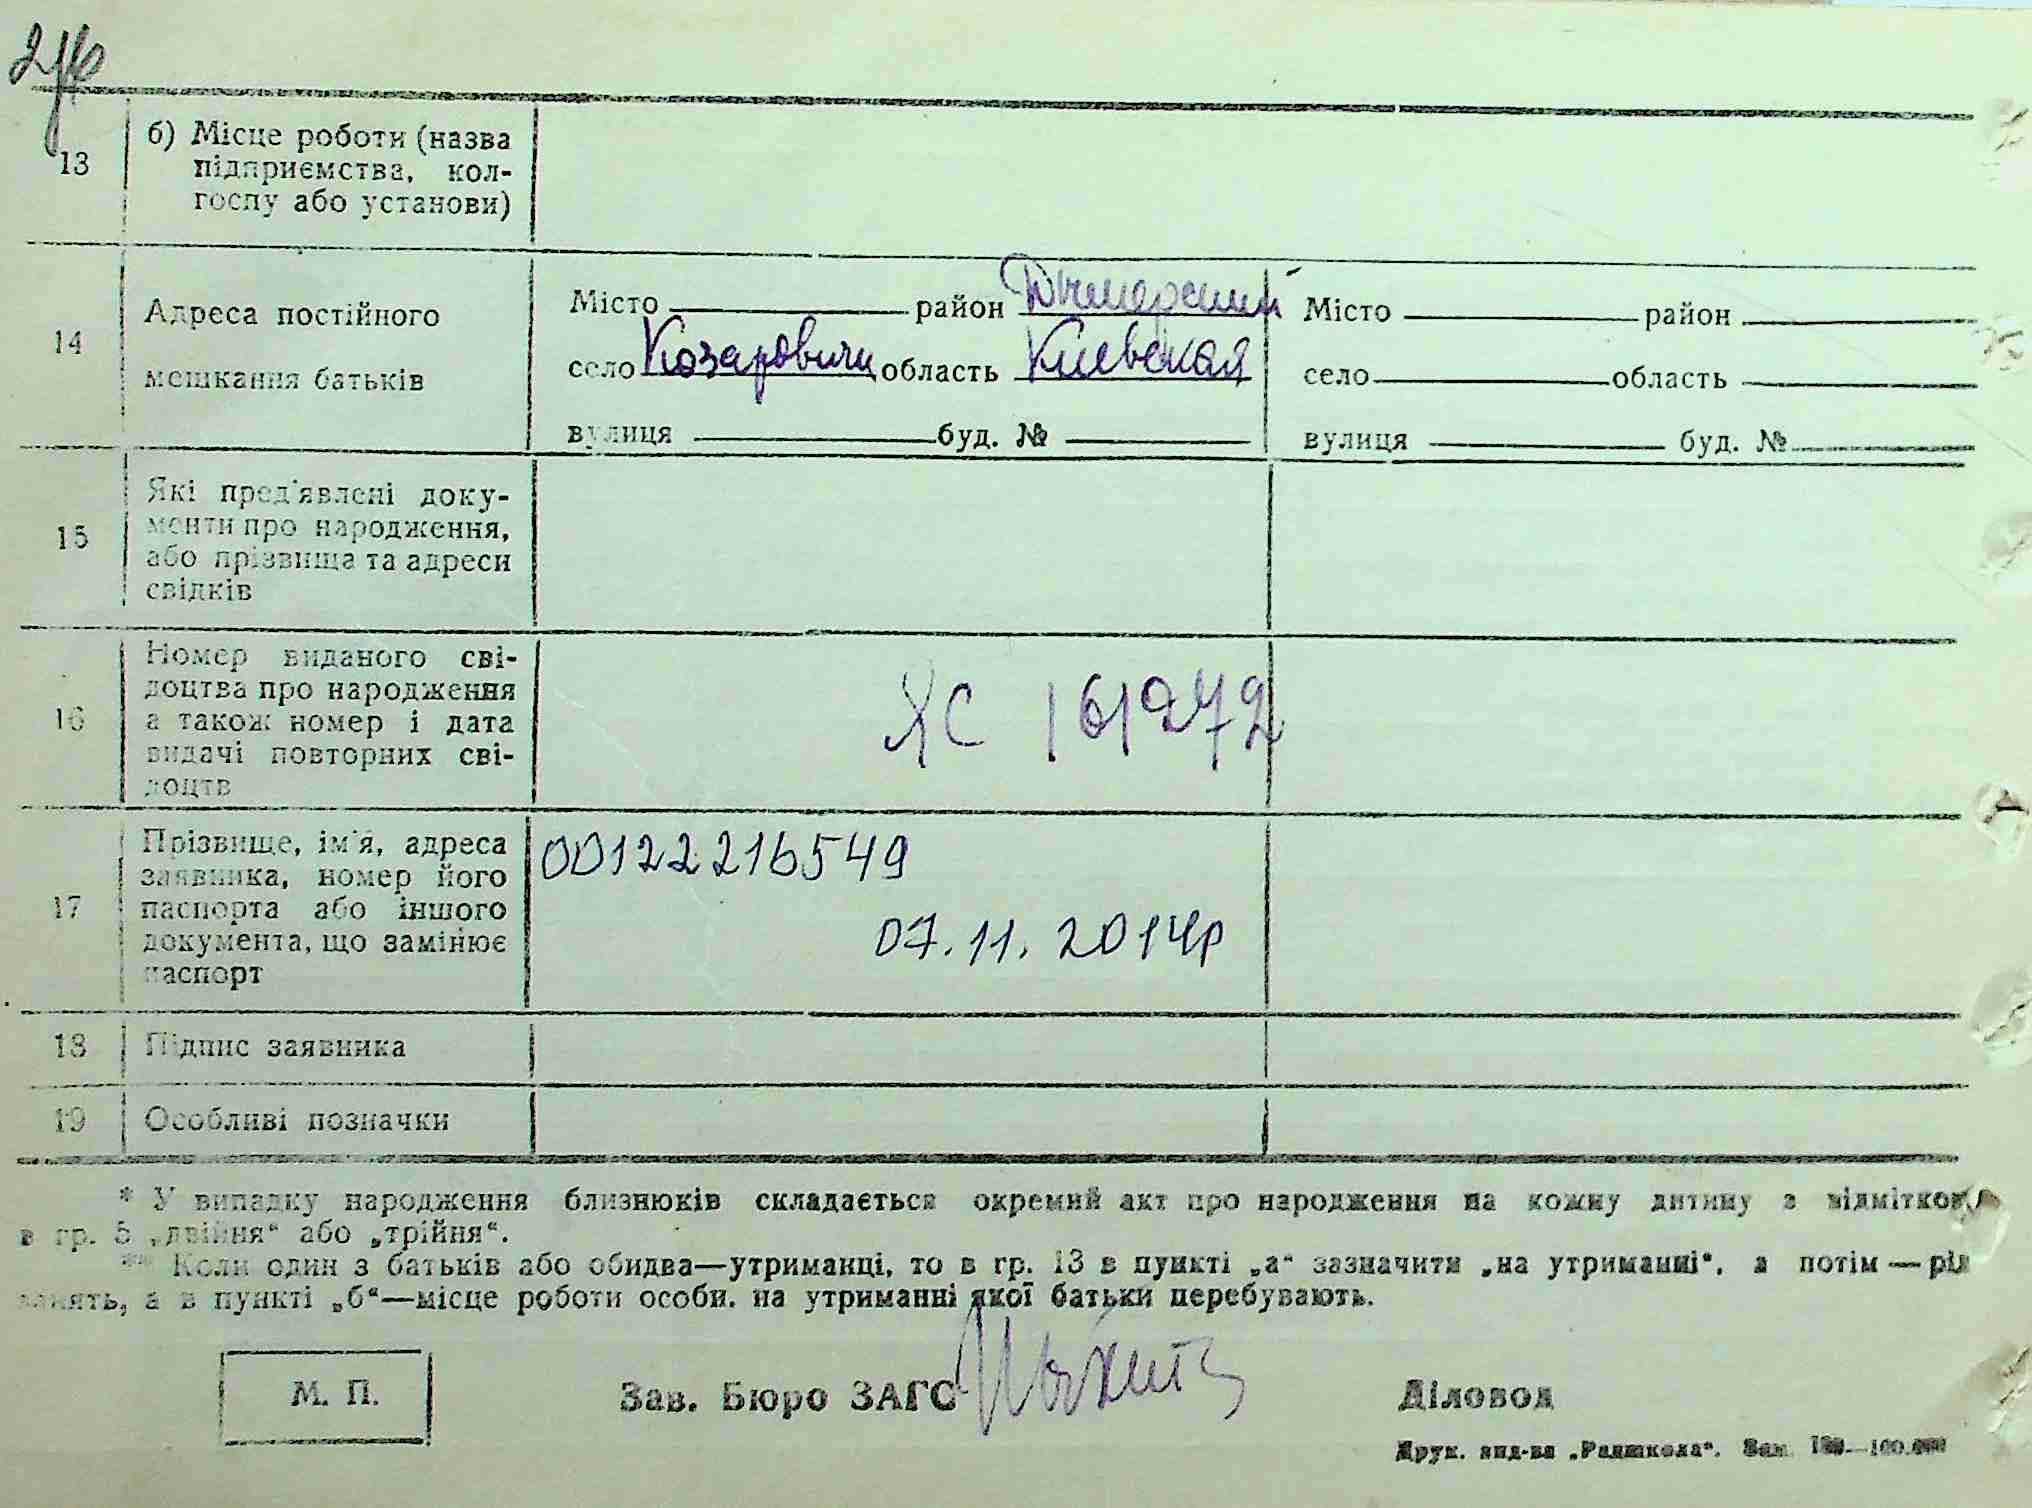 13
б) Місце роботи (назва
підприємства, кол-
госпу або установи)
14
Адреса постійного
мешкання батьків
Місто район Дымерский
село Козаровичи область Киевская
вулиця буд. №
Місто район
село область
вулиця буд. №
15
Які пред'явлені доку-
менти про народження,
або прізвища та адреси
свідків
16
Номер виданого сві-
доцтва про народження
а також номер і дата
видачі повторних сві-
доцтв
ЯС 161272
17
Прізвище, ім'я, адреса
заявника, номер його
паспорта або іншого
документа, що замінює
паспорт
00122216549
07.11.2014р
18
Підпис заявника
19
Особливі позначки
* У випадку народження близнюків складається окремий акт про народження на кожну дитину з відміткою
в гр. 5 „двійня“ або „трійня“.
** Коли один з батьків або обидва—утриманці, то в гр. 13 в пункті „а“ зазначити „на утриманні“, а потім — рід
занять, а в пункті „б“—місце роботи особи, на утриманні якої батьки перебувають.
М. П.
Зав. Бюро ЗАГС
Діловод
Друк. вид-ва „Радшкола“. Зам.